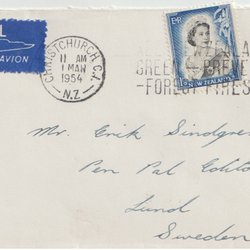 AVION
CHRISTCHURCH C.1.
11 AM
1 MAR
1954
N.Z
GREEN
PREVENT
-FOREST FIRES
E R
NEW ZEALAND
Mr. Erik Sindgre
Pen Pal Editor
Lund
Sweden